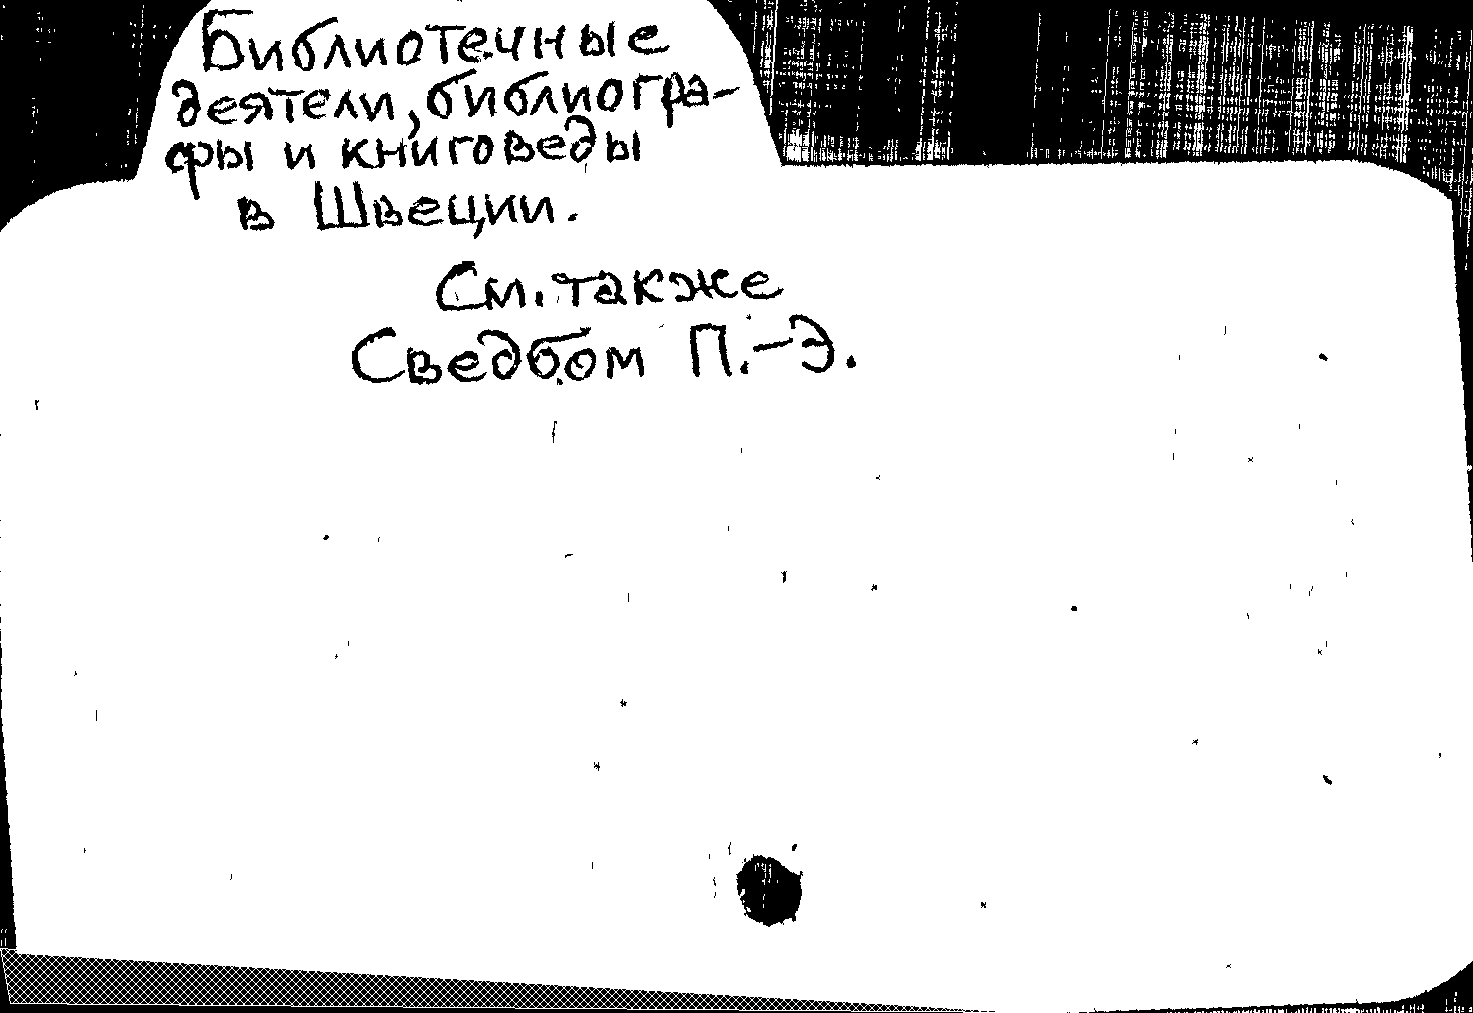 Библиотечные
деятели, библиогра-
фы и книговеды
в Швеции.
См. также
Сведбом П.-Э.